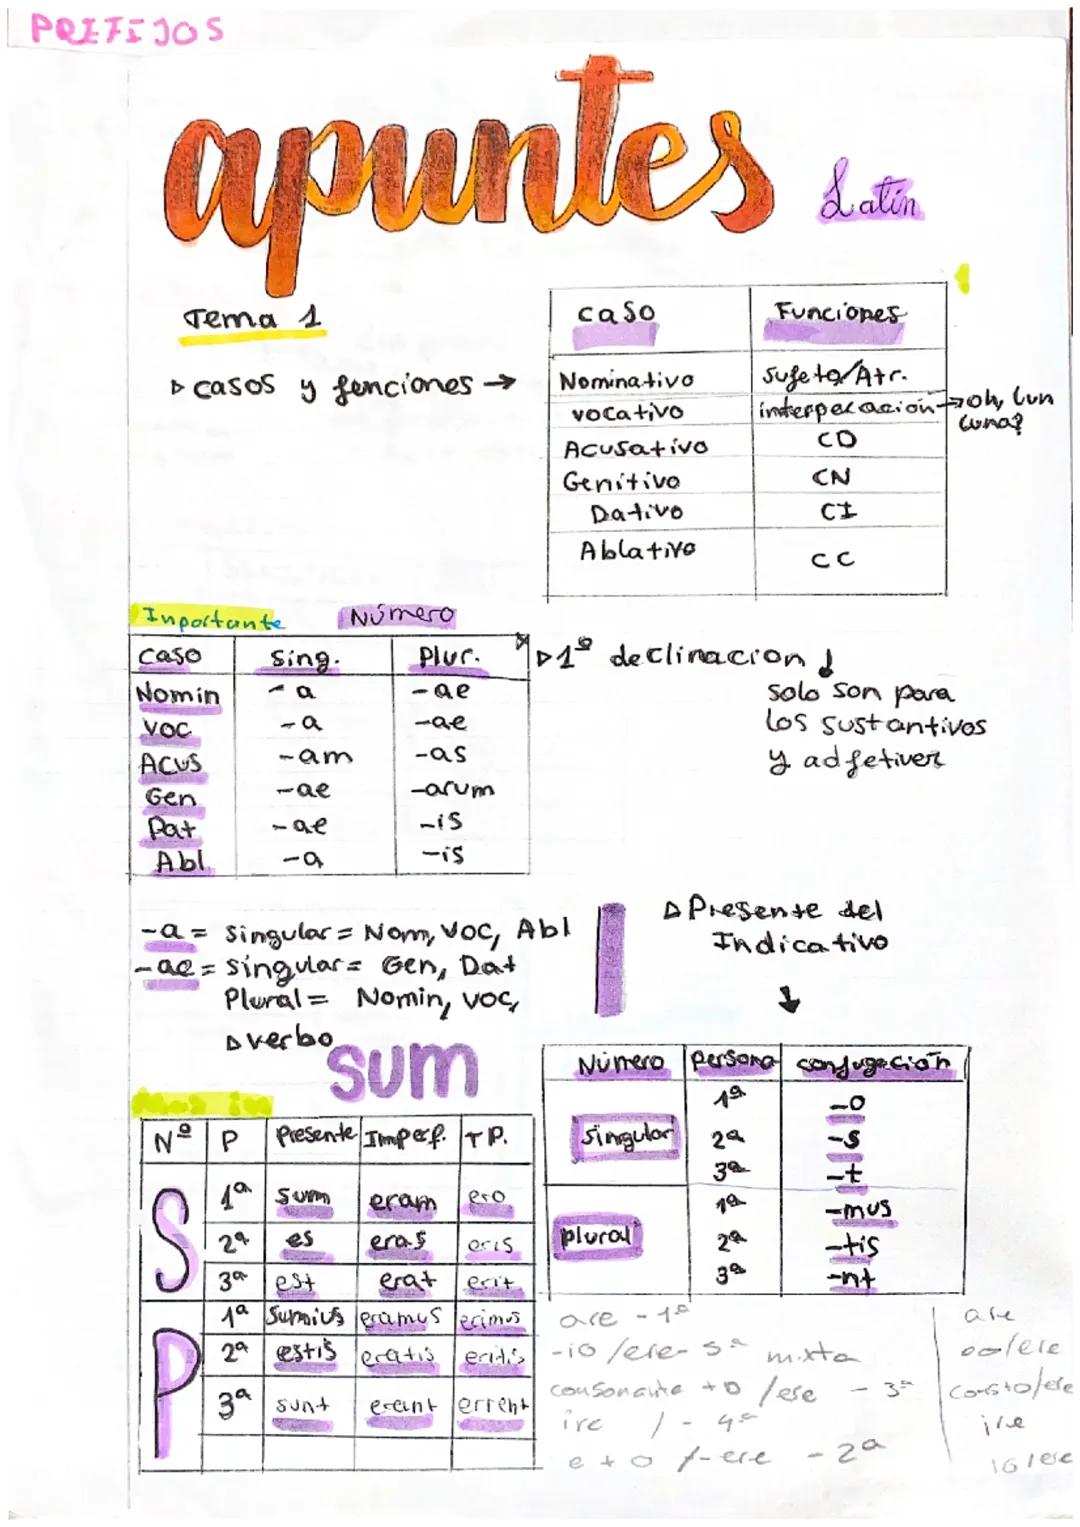 PREFIJOS
apuntes Latín
Tema 1
▷ casos y funciones →
caso Funciones
Nominativo Sujeto/Atr.
vocativo interpelación → oh, lun luna?
Acusativo CD
Genitivo CN
Dativo CI
Ablativo CC
Inportante Número
caso Sing. Plur.
Nomin -a -ae
Voc -a -ae
Acus -am -as
Gen -ae -arum
Dat -ae -is
Abl -a -is
▷ 1ª declinacion ↓
solo son para
los sustantivos
y adjetiver
-a = Singular = Nom, Voc, Abl
-ae = singular = Gen, Dat
Plural = Nomin, voc,
▷ verbo sum
Nº P Presente Imperf. T P.
S
1ª sum eram ero
2ª es eras eris
3ª est erat erit
P
1ª Sumius eramus erimus
2ª estis eratis eritis
3ª sunt erant errent
▷ Presente del
Indicativo
↓
Número persona conjugación
singular
1ª -o
2ª -s
3ª -t
plural
1ª -mus
2ª -tis
3ª -nt
are - 1ª
-io /ere - 5ª mixta
consonante + o /ere - 3ª
ire / - 4ª
e + o /-ere - 2ª
are
eo/ere
ire
io/ere